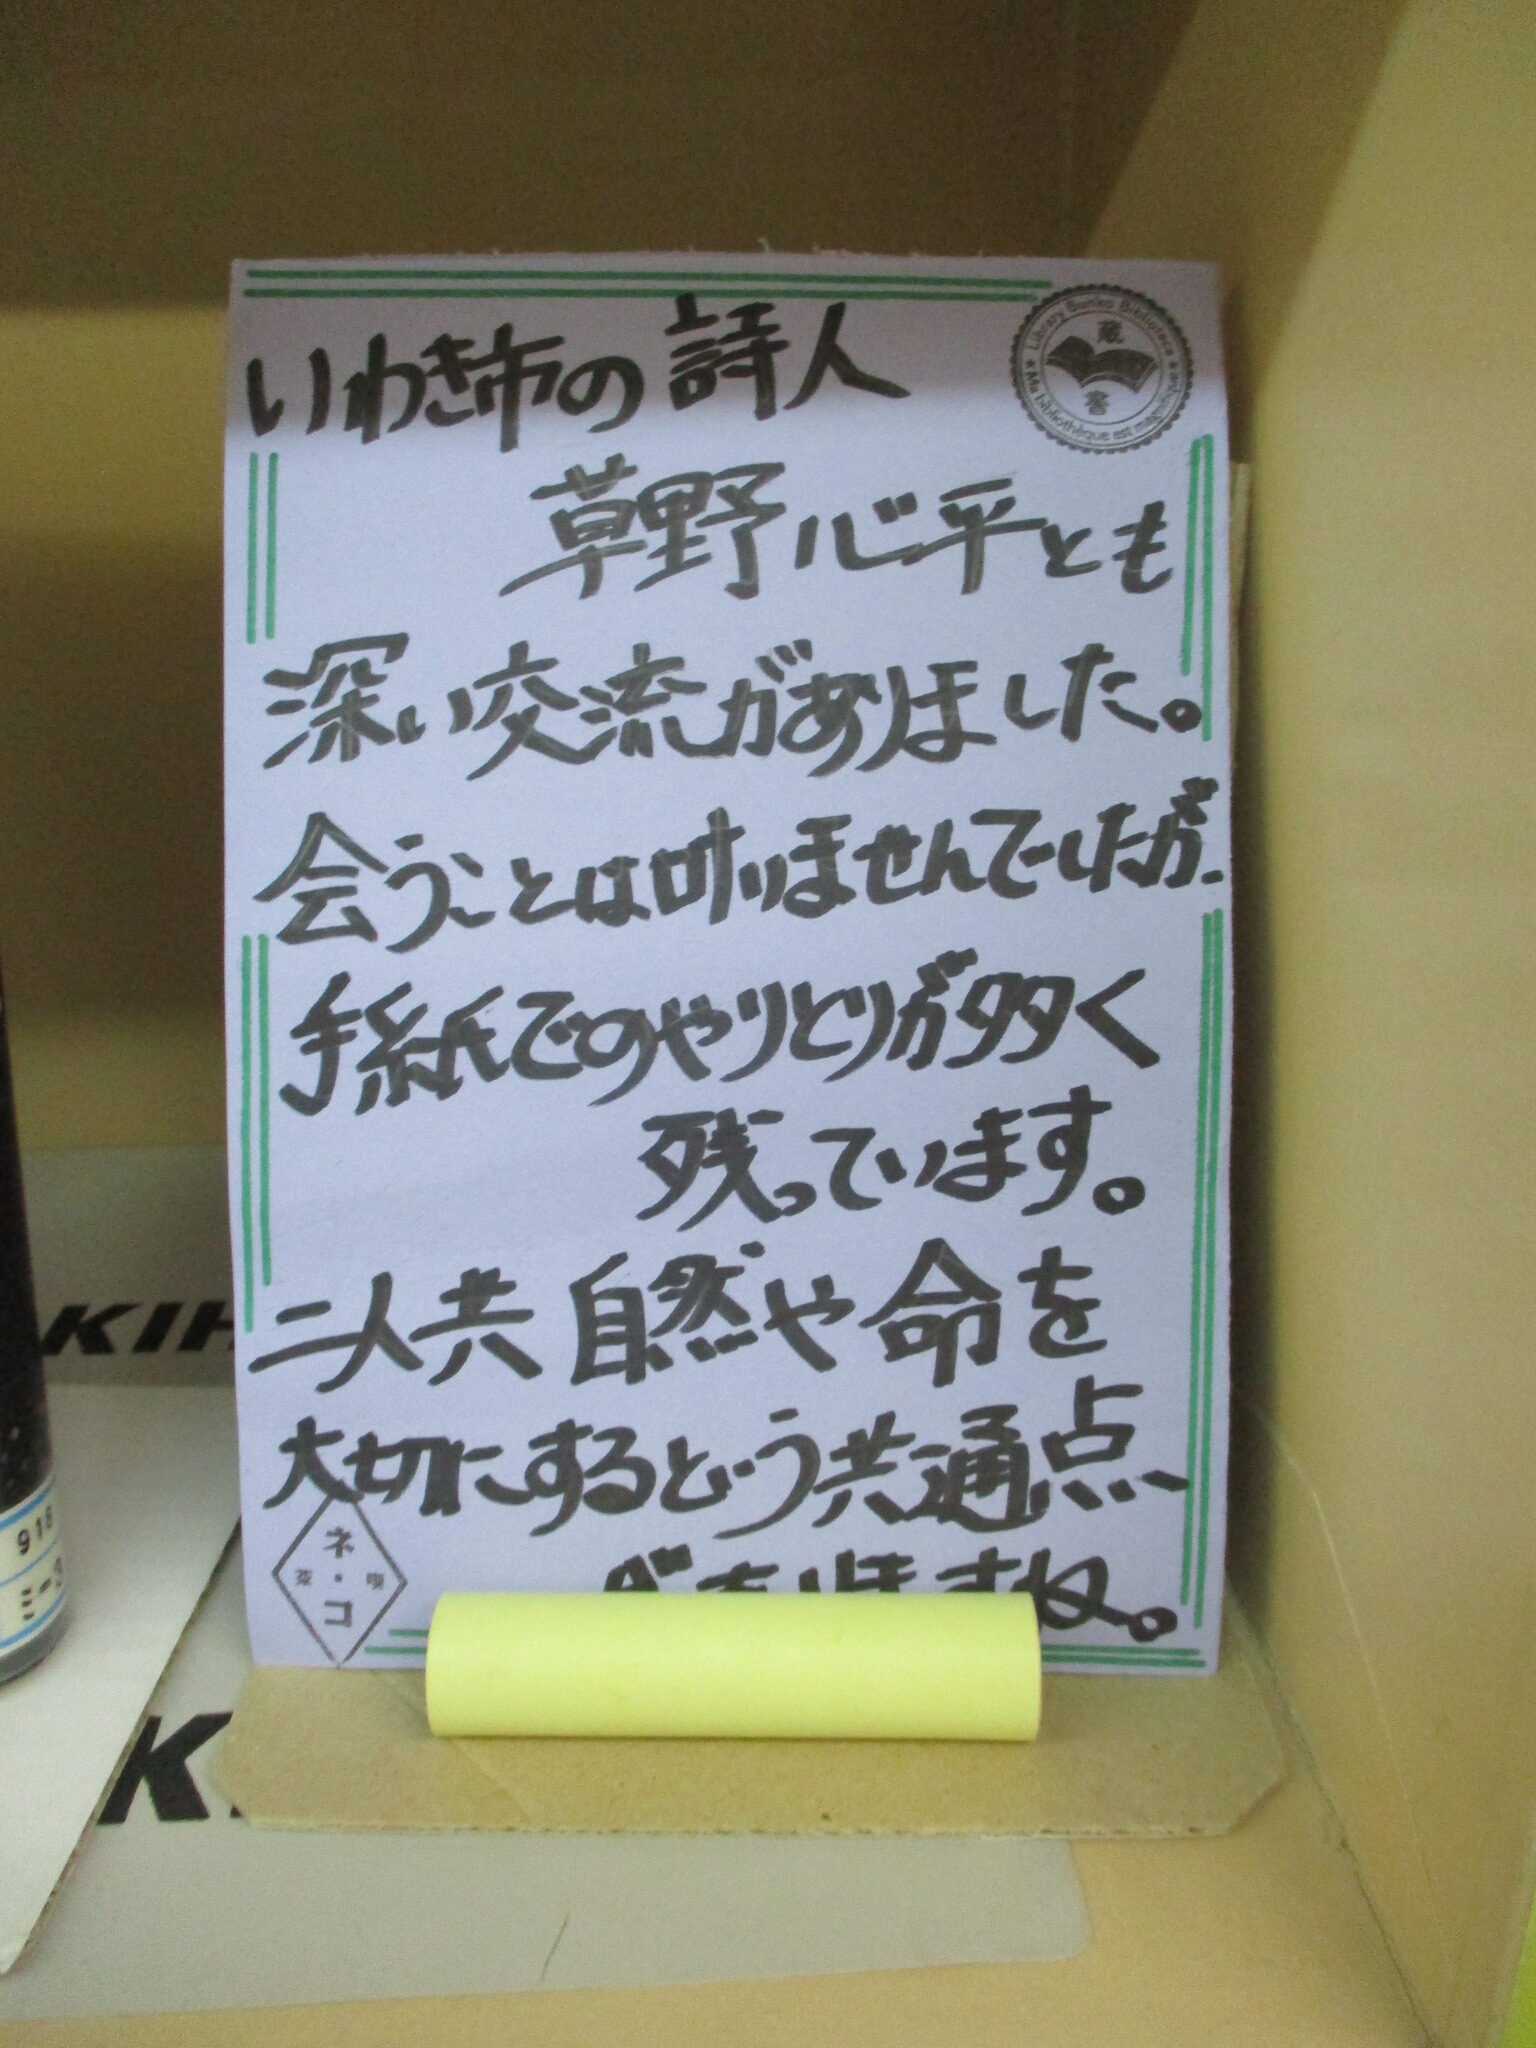 いわき市の詩人
草野心平とも
深い交流がありました。
会うことは叶いませんでしたが、
手紙でのやりとりが多く
残っています。
二人共自然や命を
大切にするという共通点、
がありますね。
Library Bunko Biblioteca
蔵書
Ma bibliothèque est magnifique
ネ・コ
KIH
K
918
ミ-3